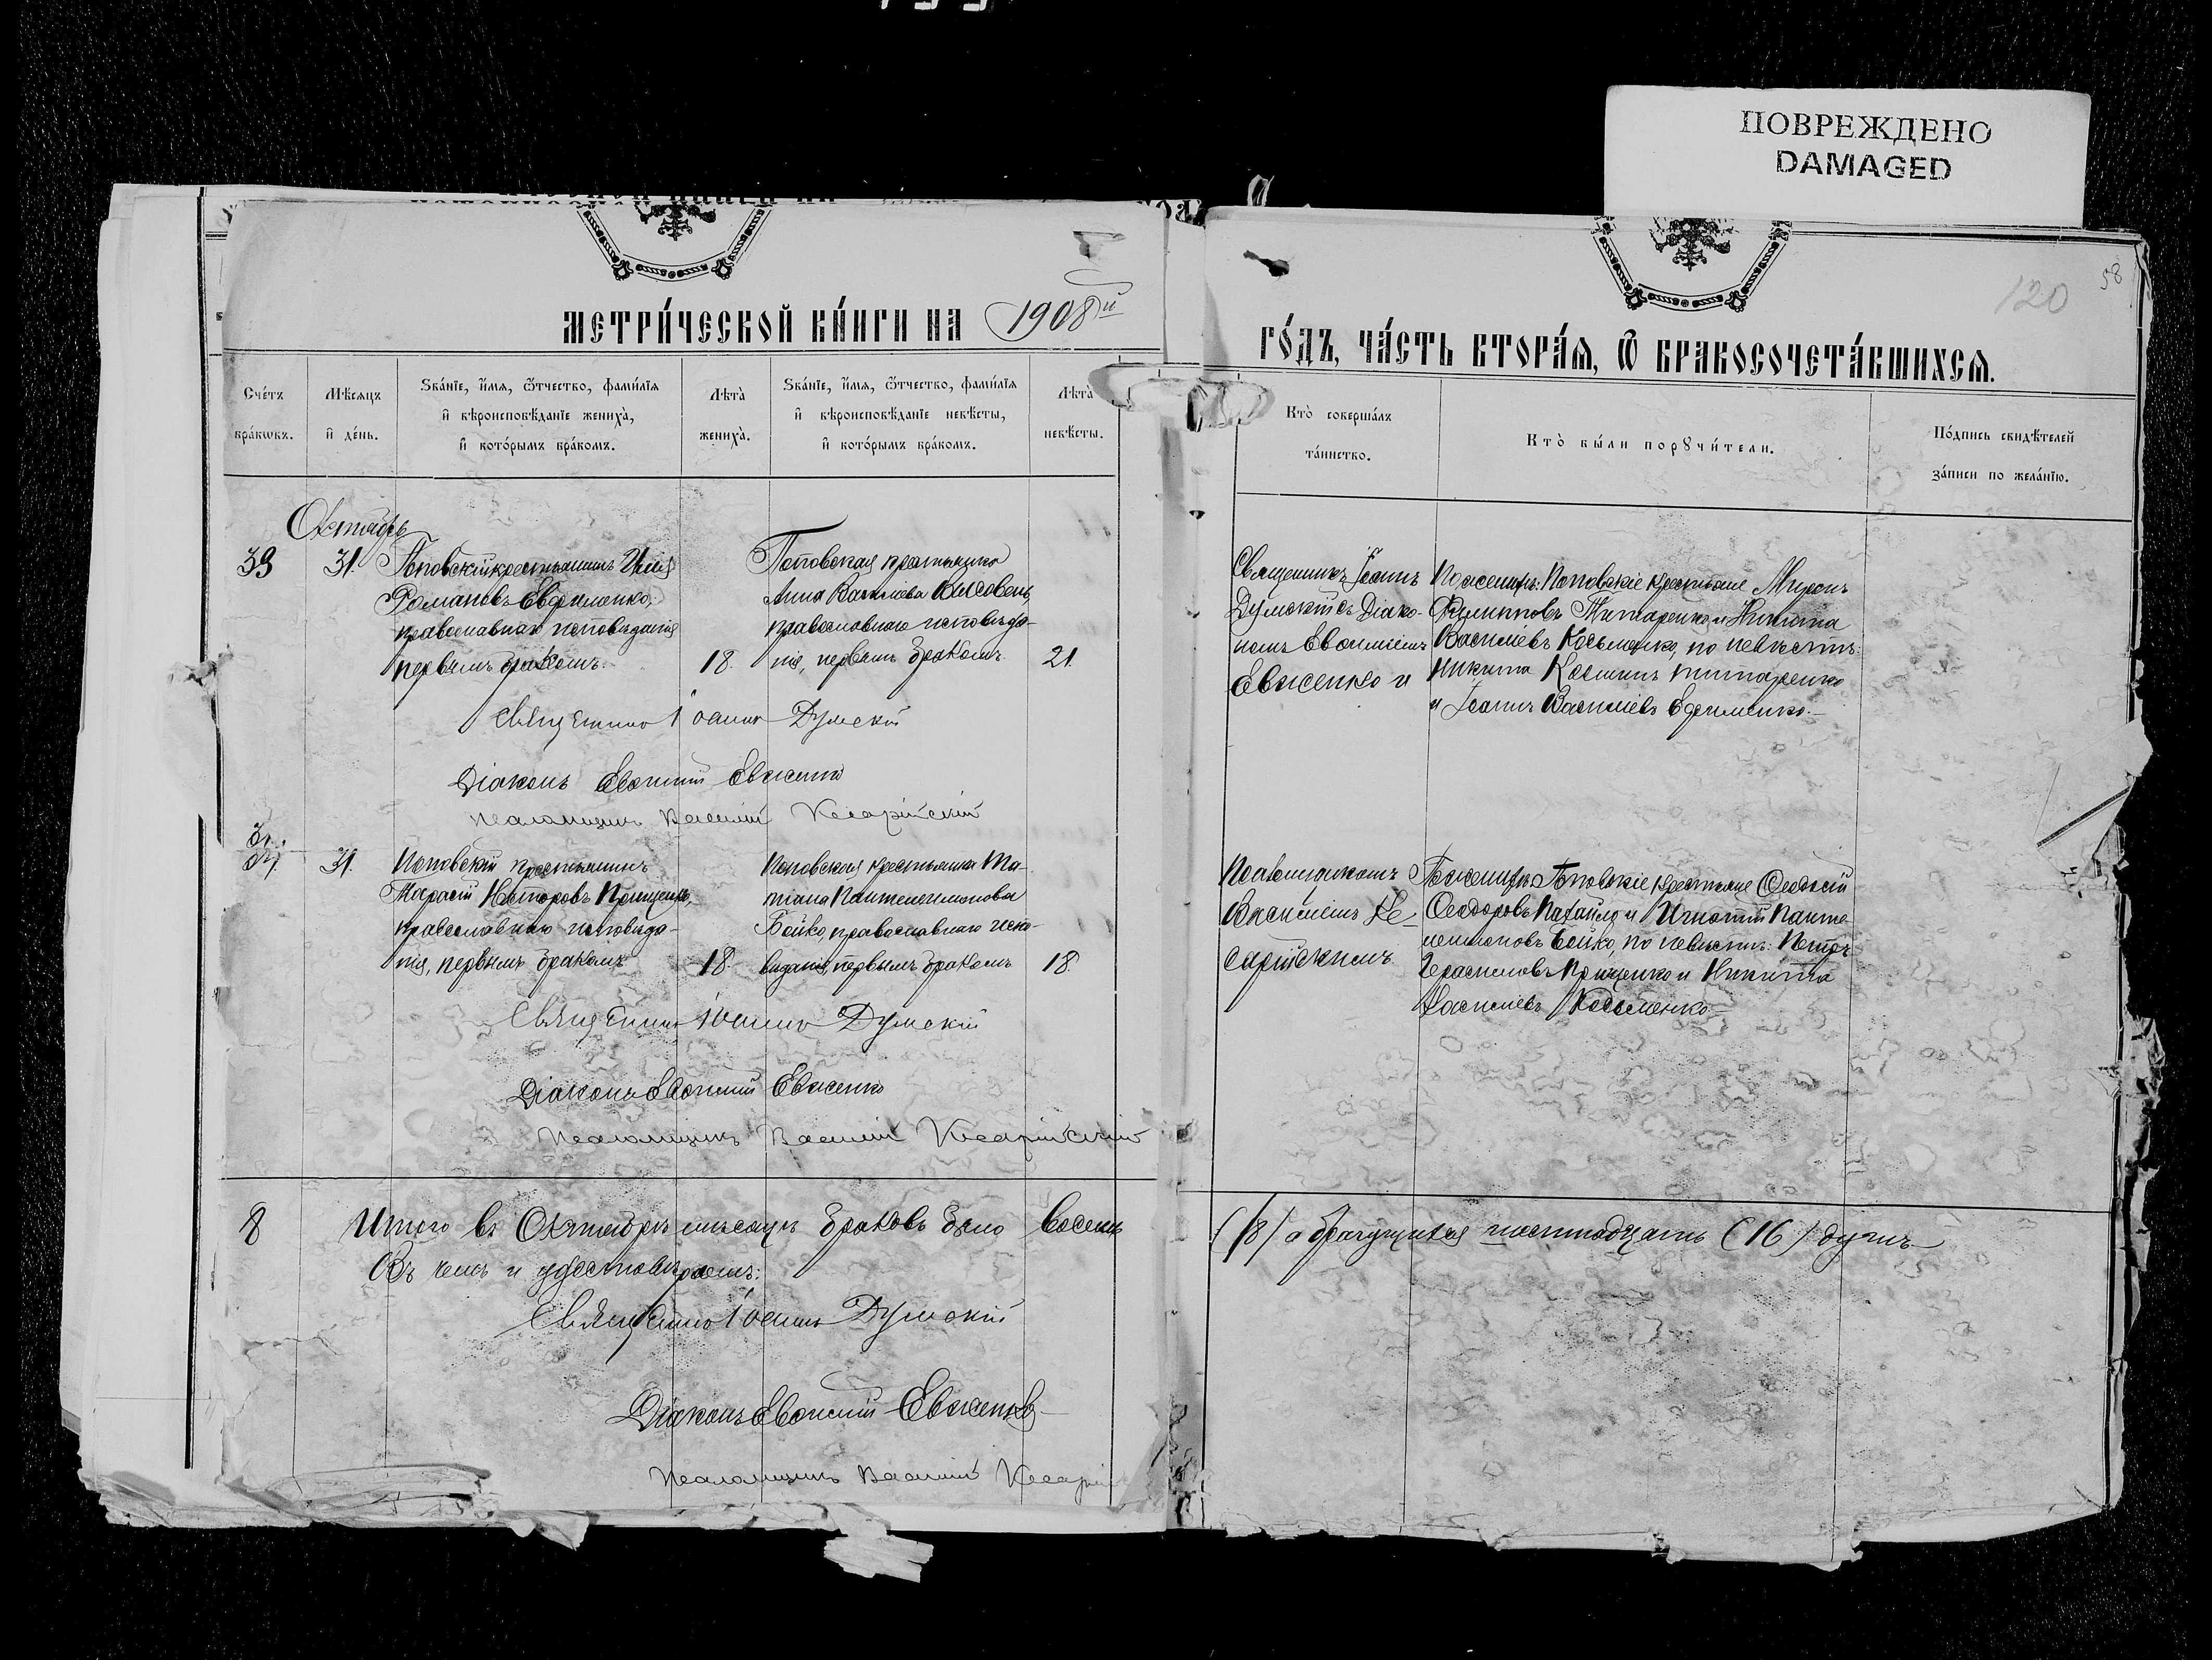 ПОВРЕЖДЕНО
DAMAGED
МЕТРИ́ЧЕСКОЙ КНИ́ГИ НА 1908й
ГО́ДЪ, ЧА́СТЬ ВТОРА́Я, Ѡ БРАКОСОЧЕТА́ВШИХСЯ.
120
58
Сче́тъ бра́кѡвъ.
Мѣ́сяцъ и де́нь.
Ѕва́нїе, и́мя, ѻ́тчество, фами́лїя и вѣроисповѣ́данїе жениха̀, и кото́рымъ бра́комъ.
Лѣта̀ жениха̀.
Ѕва́нїе, и́мя, ѻ́тчество, фами́лїя и вѣроисповѣ́данїе невѣ́сты, и кото́рымъ бра́комъ.
Лѣта̀ невѣ́сты.
Кто̀ соверша́лъ та́инство.
Кто̀ бы́ли порꙋчи́тели.
По́дпись свидѣ́телей за́писи по жела́нїю.
Октябрь
39
31.
Поповскій крестьянинъ Илія
Романовъ Евфименко,
православнаго исповѣданія
первымъ бракомъ.
18.
Поповская крестьянка
Анна Василіева
православнаго исповѣда-
нія, первымъ бракомъ
21.
Священникъ Іоаннъ
Думскій съ Діако-
номъ Евѳиміемъ
Евженко и
По женихѣ: Поповскіе крестьяне Миронъ
Филипповъ Титаренко и Никита
Василіевъ Косьменко, по невѣстѣ:
Никита Косминъ Титаренко
и Іоаннъ Василіевъ Ефименко.
Священникъ Іоаннъ Думскій
Діаконъ Евѳимій Евженко
Псаломщикъ Василій Кесарійскій
31.
Поповскій крестьянинъ
Тарасій Несторовъ Прищенко,
православнаго исповѣда-
нія, первымъ бракомъ
18.
Поповская крестьянка Та-
тіана Пантелеимонова
Бойко, православнаго испо-
вѣданія, первымъ бракомъ
18.
Псаломщикомъ
Василіемъ Ке-
сарійскимъ.
По женихѣ: Поповскіе крестьяне
Ѳеодоровъ и Игнатій Панте-
леимоновъ Бойко, по невѣстѣ: Петръ
Герасимовъ Прищенко и Никита
Василіевъ Косьменко
Священникъ Іоаннъ Думскій
Діаконъ Евѳимій Евженко
Псаломщикъ Василій Кесарійскій
8
Итого въ Октябрѣ мѣсяцѣ браковъ было восемь
(8) а брачущихся шестнадцать (16) душъ
Въ чемъ и удостовѣряемъ:
Священникъ Іоаннъ Думскій
Діаконъ Евѳимій Евженко
Псаломщикъ Василій